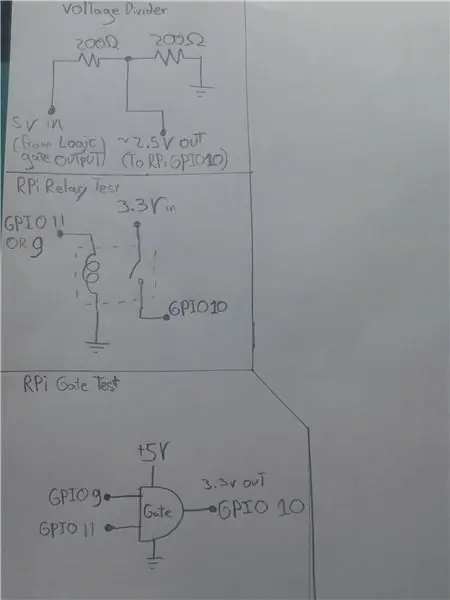 Voltage Divider
200Ω 200Ω
5V in
(from Logic gate output)
~2.5V out
(To RPi GPIO10)
RPi Relay Test
GPIO 11
OR 9
3.3V in
GPIO10
RPi Gate Test
+5V
GPIO 9
Gate
3.3v out
GPIO 10
GPIO 11